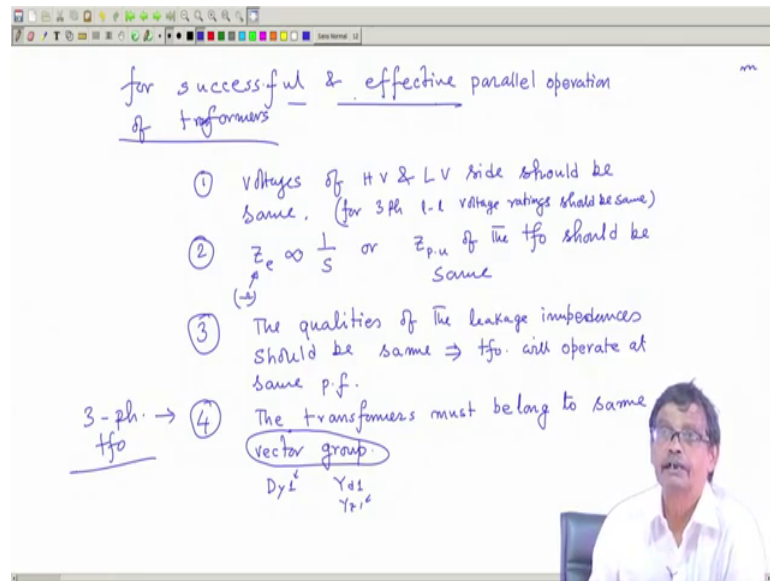 Sans Normal 12
m
for successful & effective parallel operation
of trnformers
① Voltages of HV & LV side should be
same. (for 3 ph l-l voltage ratings should be same)
② Ze ∞ 1/S or Zp.u of the tfo should be
(Ω) same
③ The qualities of the leakage impedances
should be same ⇒ tfo. will operate at
same p.f.
3-ph. → ④ The transformers must belong to same
tfo vector group.
Dy1 Yd1